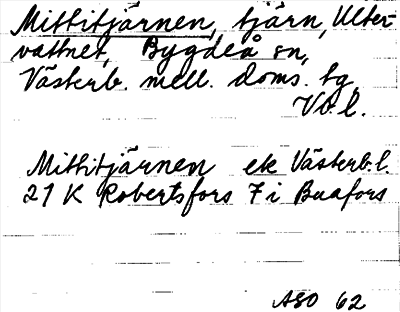 Mittitjärnen, tjärn, Ulter-
vattnet, Bygdeå sn,
Västerb. mell. doms. tg
Vb.l.
Mittitjärnen ek Västerb.l.
21 K Robertsfors 7 i Buafors
ASO 62